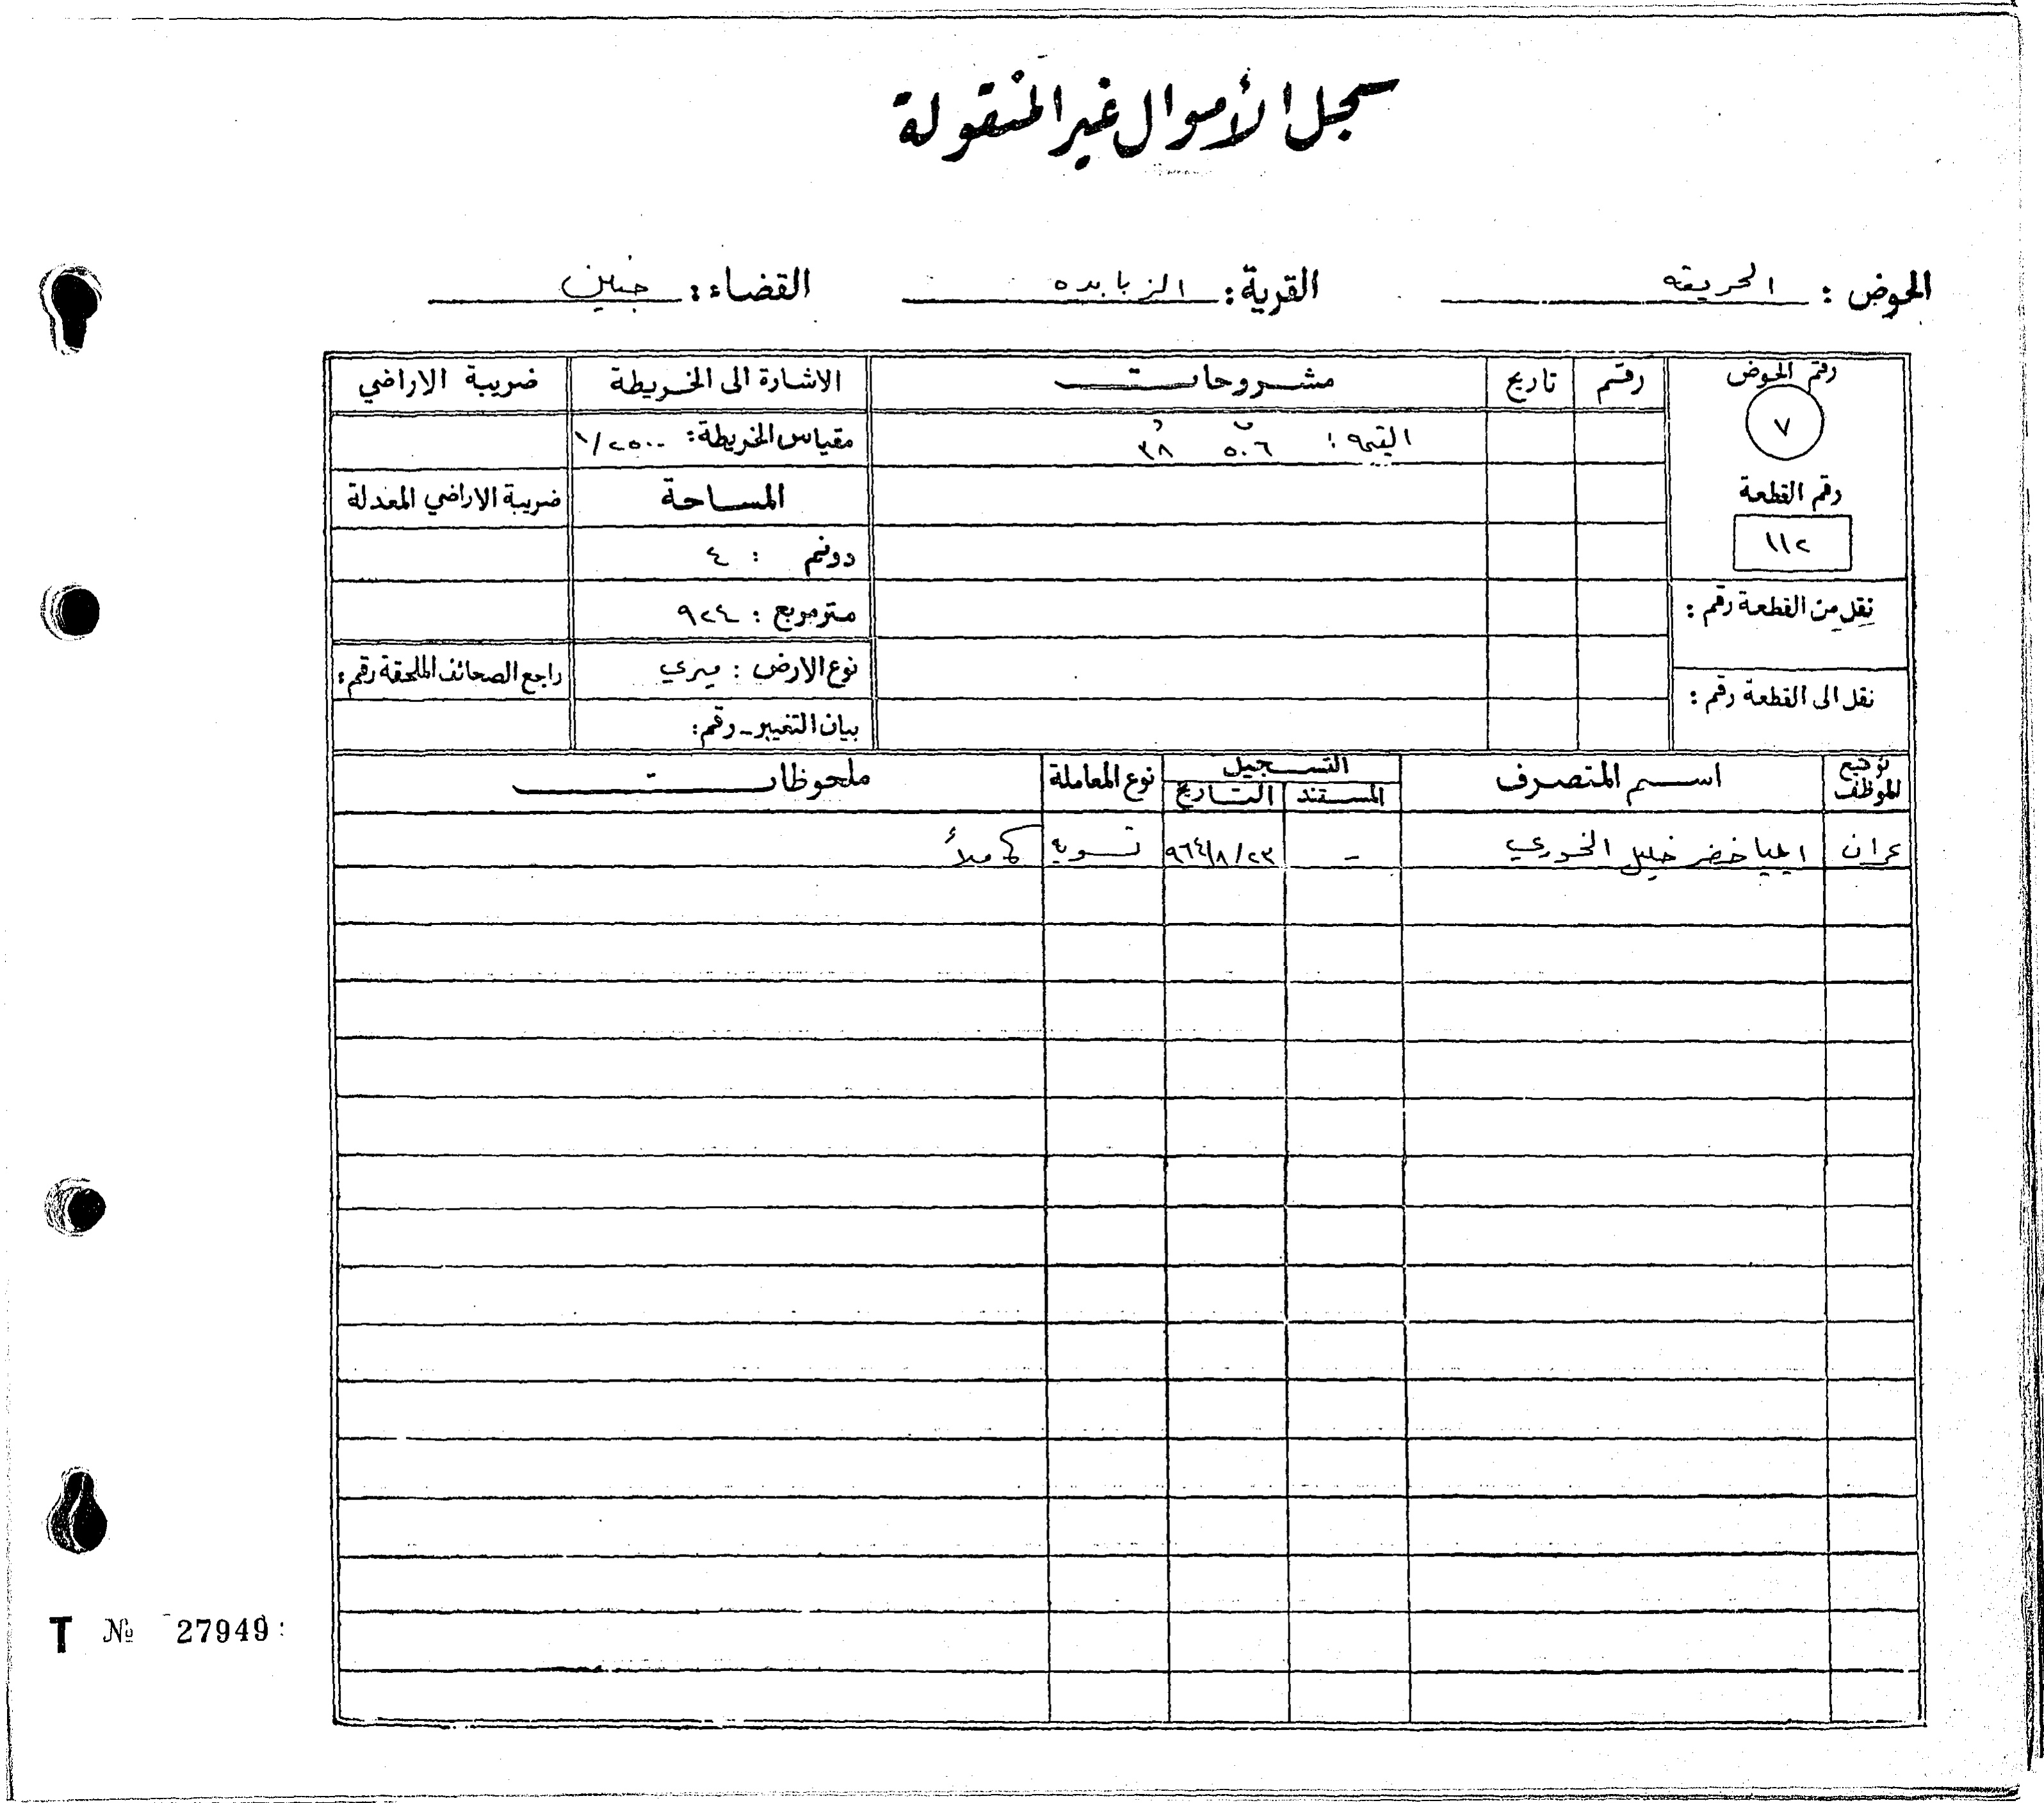 سجل الأموال غير المنقولة
الحوض : الحريقه القرية : الزبابده القضاء : جنين
رقم الحوض رقم تاريخ مشروحات الاشارة الى الخريطة ضريبة الاراضي
٧ القيمة : ٥٠٦ ٣٨ مقياس الخريطة : ١/٢٥٠٠
رقم القطعة المساحة ضريبة الاراضي المعدلة
١١٢ دونم : ٤
نقل من القطعة رقم : متر مربع : ٩٢٤
نقل الى القطعة رقم : نوع الارض : ميري راجع الصحائف الملحقة رقم :
بيان التغيير - رقم :
توقيع الموظف اسم المتصرف التسجيل نوع المعاملة ملحوظات
المستند التاريخ
ايليا خضر خليل الخوري - ٩٦٤/٨/٢٣ تسويه كاملاً
T № 27949